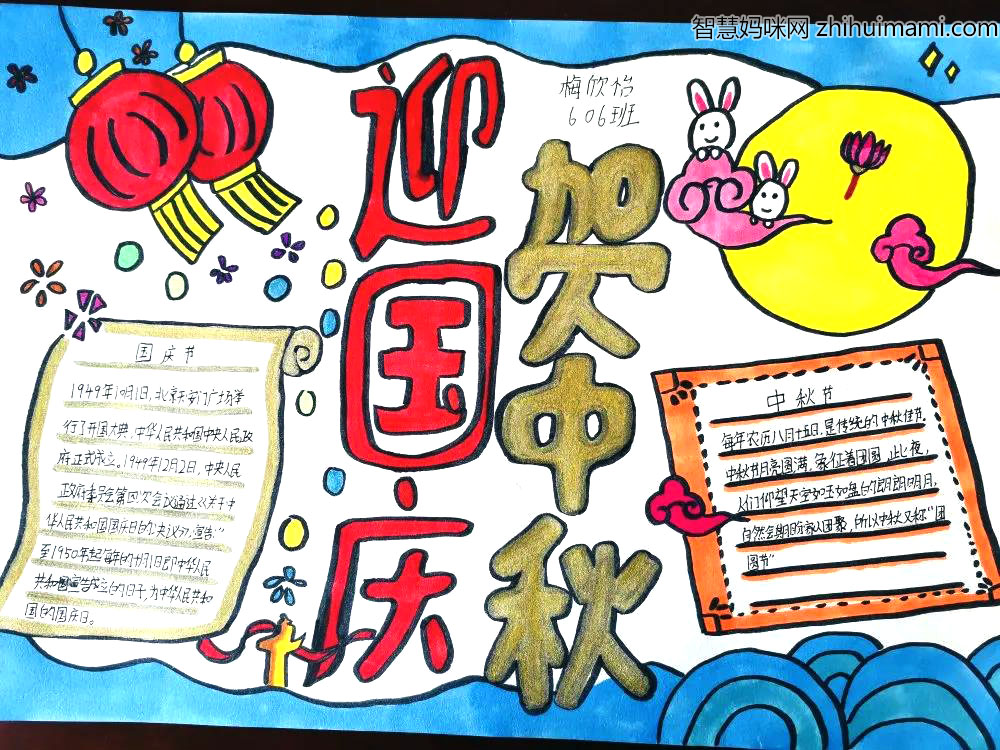 智慧妈咪网 zhihuimami.com
梅欣怡
606班
迎国庆
贺中秋
国庆节
1949年10月1日,北京天安门广场举
行了开国大典,中华人民共和国中央人民政
府正式成立。1949年12月2日,中央人民
政府委员会第四次会议通过《关于中
华人民共和国国庆日的决议》,宣告:“
至1950年起每年的十月1日即中华人民
共和国宣告成立的日子,为中华人民共和
国的国庆日。
中秋节
每年农历八月十五日,是传统的中秋佳节
中秋节月亮圆满,象征着团圆,此夜,
人们仰望天空如玉如盘的朗朗明月,
自然会期盼家人团聚,所以中秋又称“团
圆节”